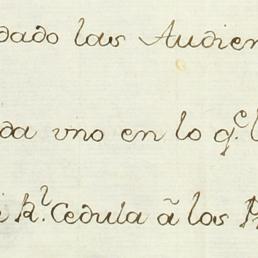 dado las Audien
da vno en lo q.e l
i R.l Cedula â las P